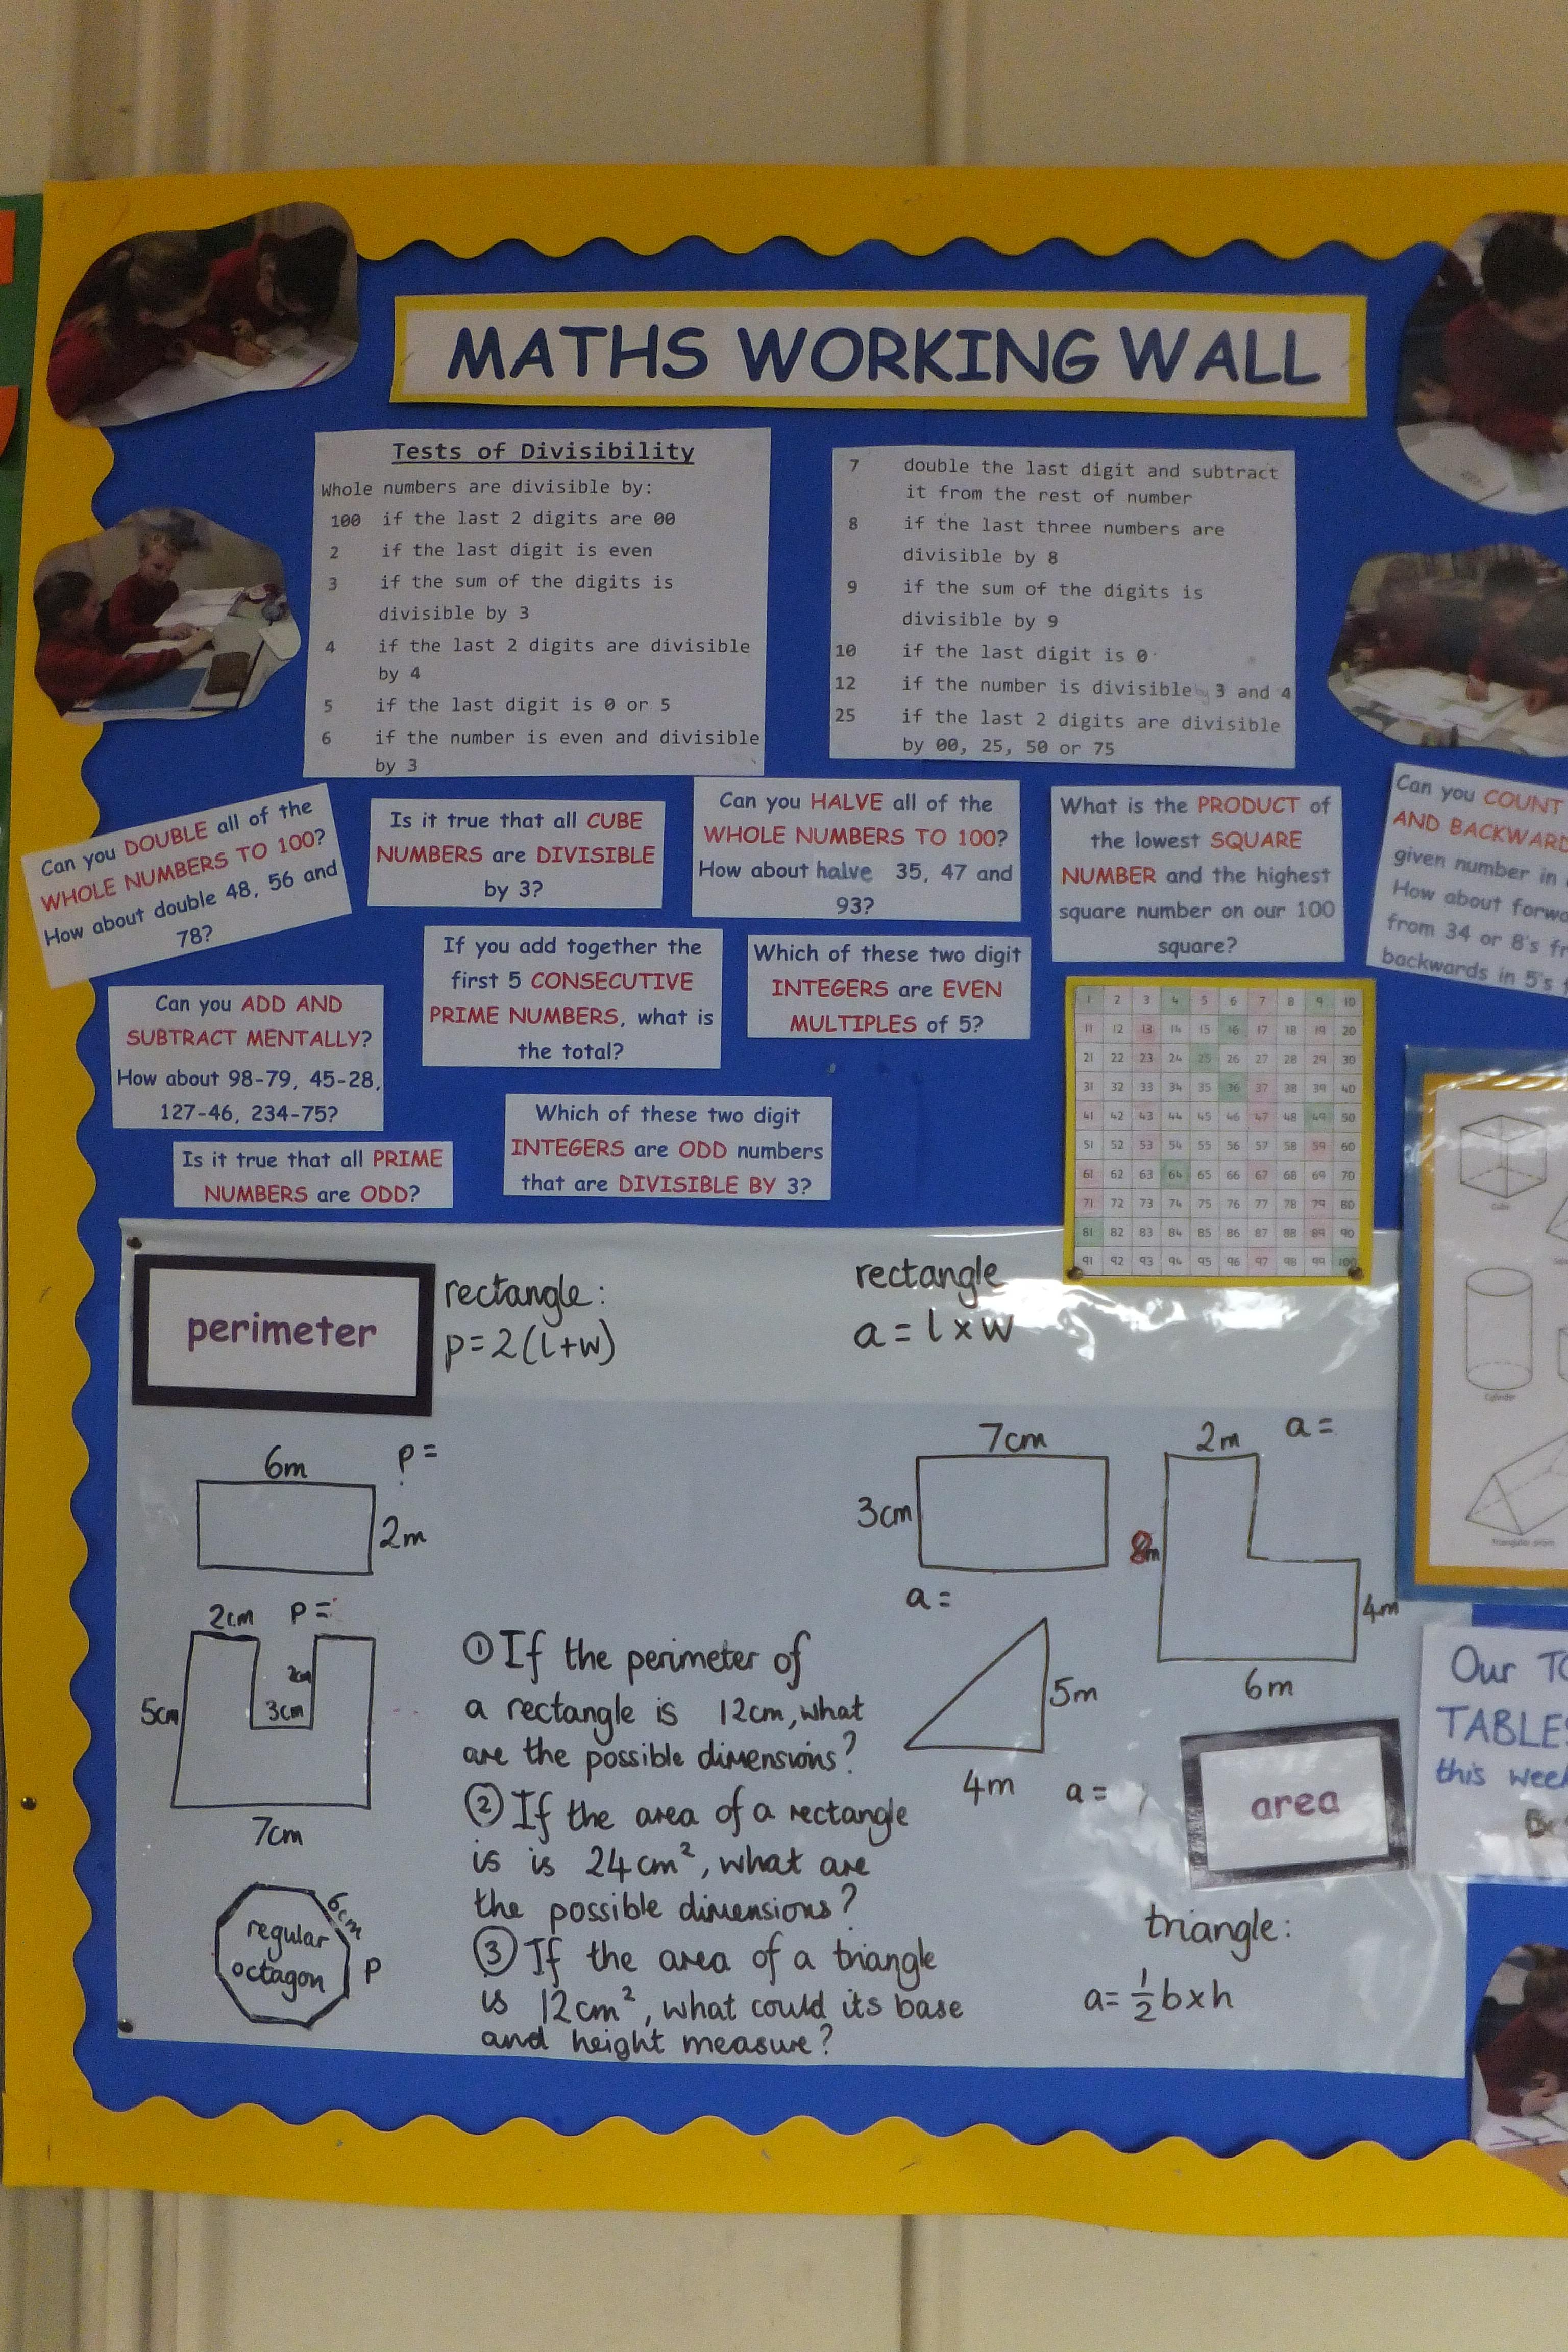 MATHS WORKING WALL
Tests of Divisibility
Whole numbers are divisible by:
100 if the last 2 digits are 00
2 if the last digit is even
3 if the sum of the digits is
divisible by 3
4 if the last 2 digits are divisible
by 4
5 if the last digit is 0 or 5
6 if the number is even and divisible
by 3
7 double the last digit and subtract
it from the rest of number
8 if the last three numbers are
divisible by 8
9 if the sum of the digits is
divisible by 9
10 if the last digit is 0
12 if the number is divisible by 3 and 4
25 if the last 2 digits are divisible
by 00, 25, 50 or 75
Can you DOUBLE all of the
WHOLE NUMBERS TO 100?
How about double 48, 56 and
78?
Is it true that all CUBE
NUMBERS are DIVISIBLE
by 3?
Can you HALVE all of the
WHOLE NUMBERS TO 100?
How about halve 35, 47 and
93?
What is the PRODUCT of
the lowest SQUARE
NUMBER and the highest
square number on our 100
square?
Can you COUNT
AND BACKWARD
given number in
How about forwa
from 34 or 8's fr
backwards in 5's f
Can you ADD AND
SUBTRACT MENTALLY?
How about 98-79, 45-28,
127-46, 234-75?
If you add together the
first 5 CONSECUTIVE
PRIME NUMBERS, what is
the total?
Which of these two digit
INTEGERS are EVEN
MULTIPLES of 5?
Is it true that all PRIME
NUMBERS are ODD?
Which of these two digit
INTEGERS are ODD numbers
that are DIVISIBLE BY 3?
1 2 3 4 5 6 7 8 9 10
11 12 13 14 15 16 17 18 19 20
21 22 23 24 25 26 27 28 29 30
31 32 33 34 35 36 37 38 39 40
41 42 43 44 45 46 47 48 49 50
51 52 53 54 55 56 57 58 59 60
61 62 63 64 65 66 67 68 69 70
71 72 73 74 75 76 77 78 79 80
81 82 83 84 85 86 87 88 89 90
91 92 93 94 95 96 97 98 99 100
Cube
Cylinder
Triangular prism
perimeter
rectangle:
p=2(l+w)
rectangle
a = l x w
6m
p =
2m
7cm
3cm
a =
2m
a =
8m
4m
6m
2cm
p =
2cm
5cm
3cm
7cm
① If the perimeter of
a rectangle is 12cm, what
are the possible dimensions?
② If the area of a rectangle
is is 24cm², what are
the possible dimensions?
③ If the area of a triangle
is 12cm², what could its base
and height measure?
5m
4m
a =
area
Our TO
TABLES
this week
6cm
regular
octagon
P
triangle:
a= ½ b x h